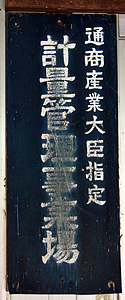 通商産業大臣指定
計量管理事業場